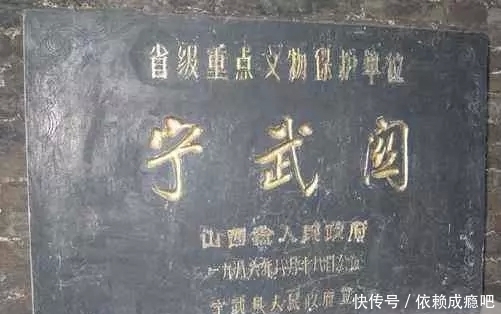 省级重点文物保护单位
宁武关
山西省人民政府
一九八六年八月十八日公布
宁武县人民政府立
快传号／依赖成瘾吧